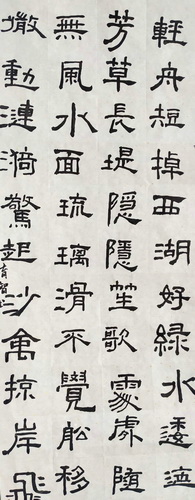 輕舟短掉西湖好綠水逶迤
芳草長堤隱隱笙歌處處隨
無風水面琉璃滑不覺舩移
微動漣漪驚起沙禽掠岸飛